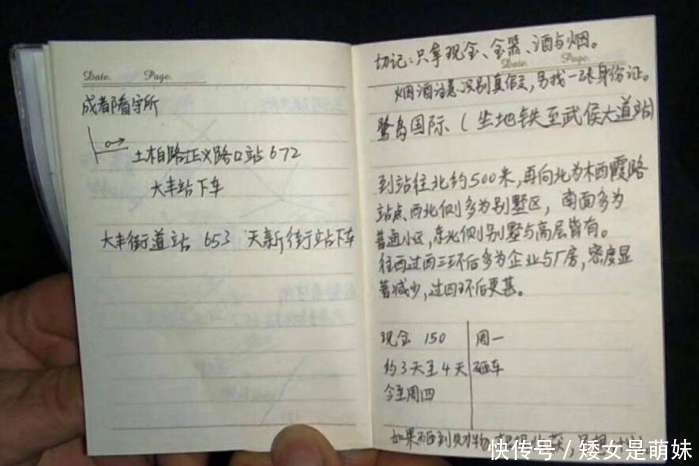 Date.      Page.
成都陪看守所
土柏路正义路口站 672
大丰站下车
大丰街道站 653 天新街站下车
切记:只拿现金、金器、酒与烟。
Date.      Page.
烟酒注意识别真假,另找一张身份证。
鹭岛国际、(坐地铁至武侯大道站)
到站往北约500米,再向北为木西霞路
站点、西北侧多为别墅区, 南面多为
普通小区,东北侧别墅与高层皆有。
往西过西三环后多为企业与厂房,密度显
著减少,过四环后更甚。
现金 150 周一
约3天至4天 砸车
今至周四
如果
快传号/矮女是萌妹